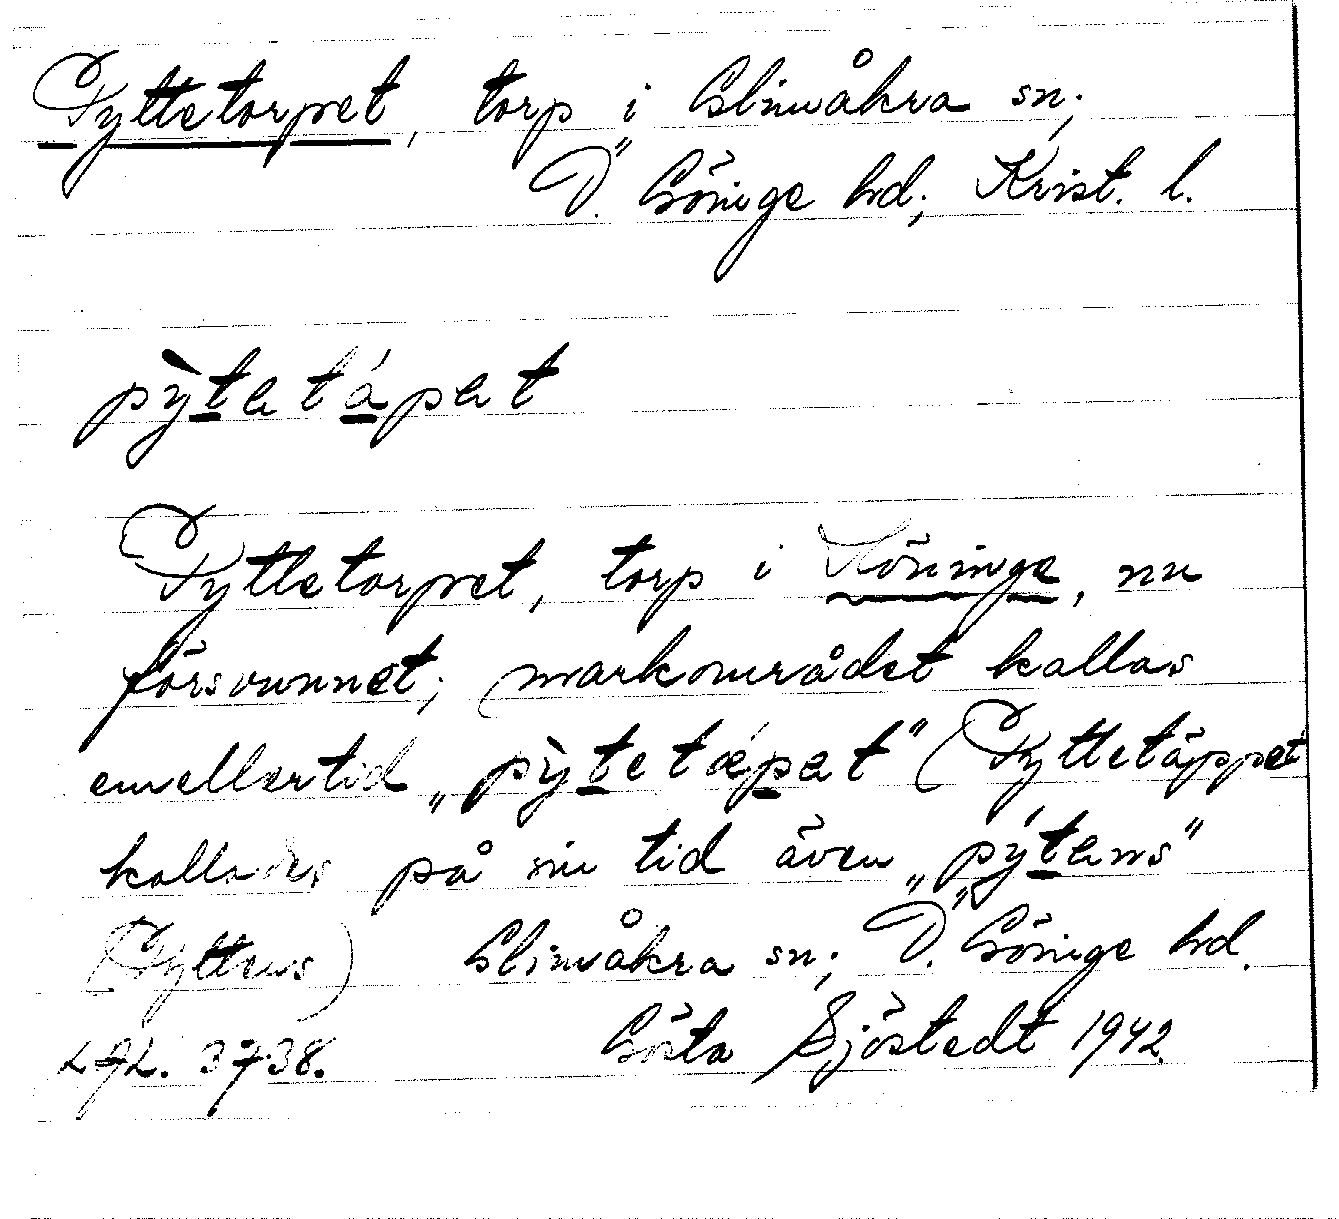 Pyttetorpet, torp i Glimåkra sn;
Ö. Göinge hd; Krist. l.
pỳtetápet
Pyttetorpet, torp i Höninge, nu
försvunnet; markområdet kallas
emellertid „pỳtetǽpet” (Pyttetäppet
kallades på sin tid även „pýtens”
(Pyttens) Glimåkra sn; Ö. Göinge hd.
3738. Gösta Sjöstedt 1942.